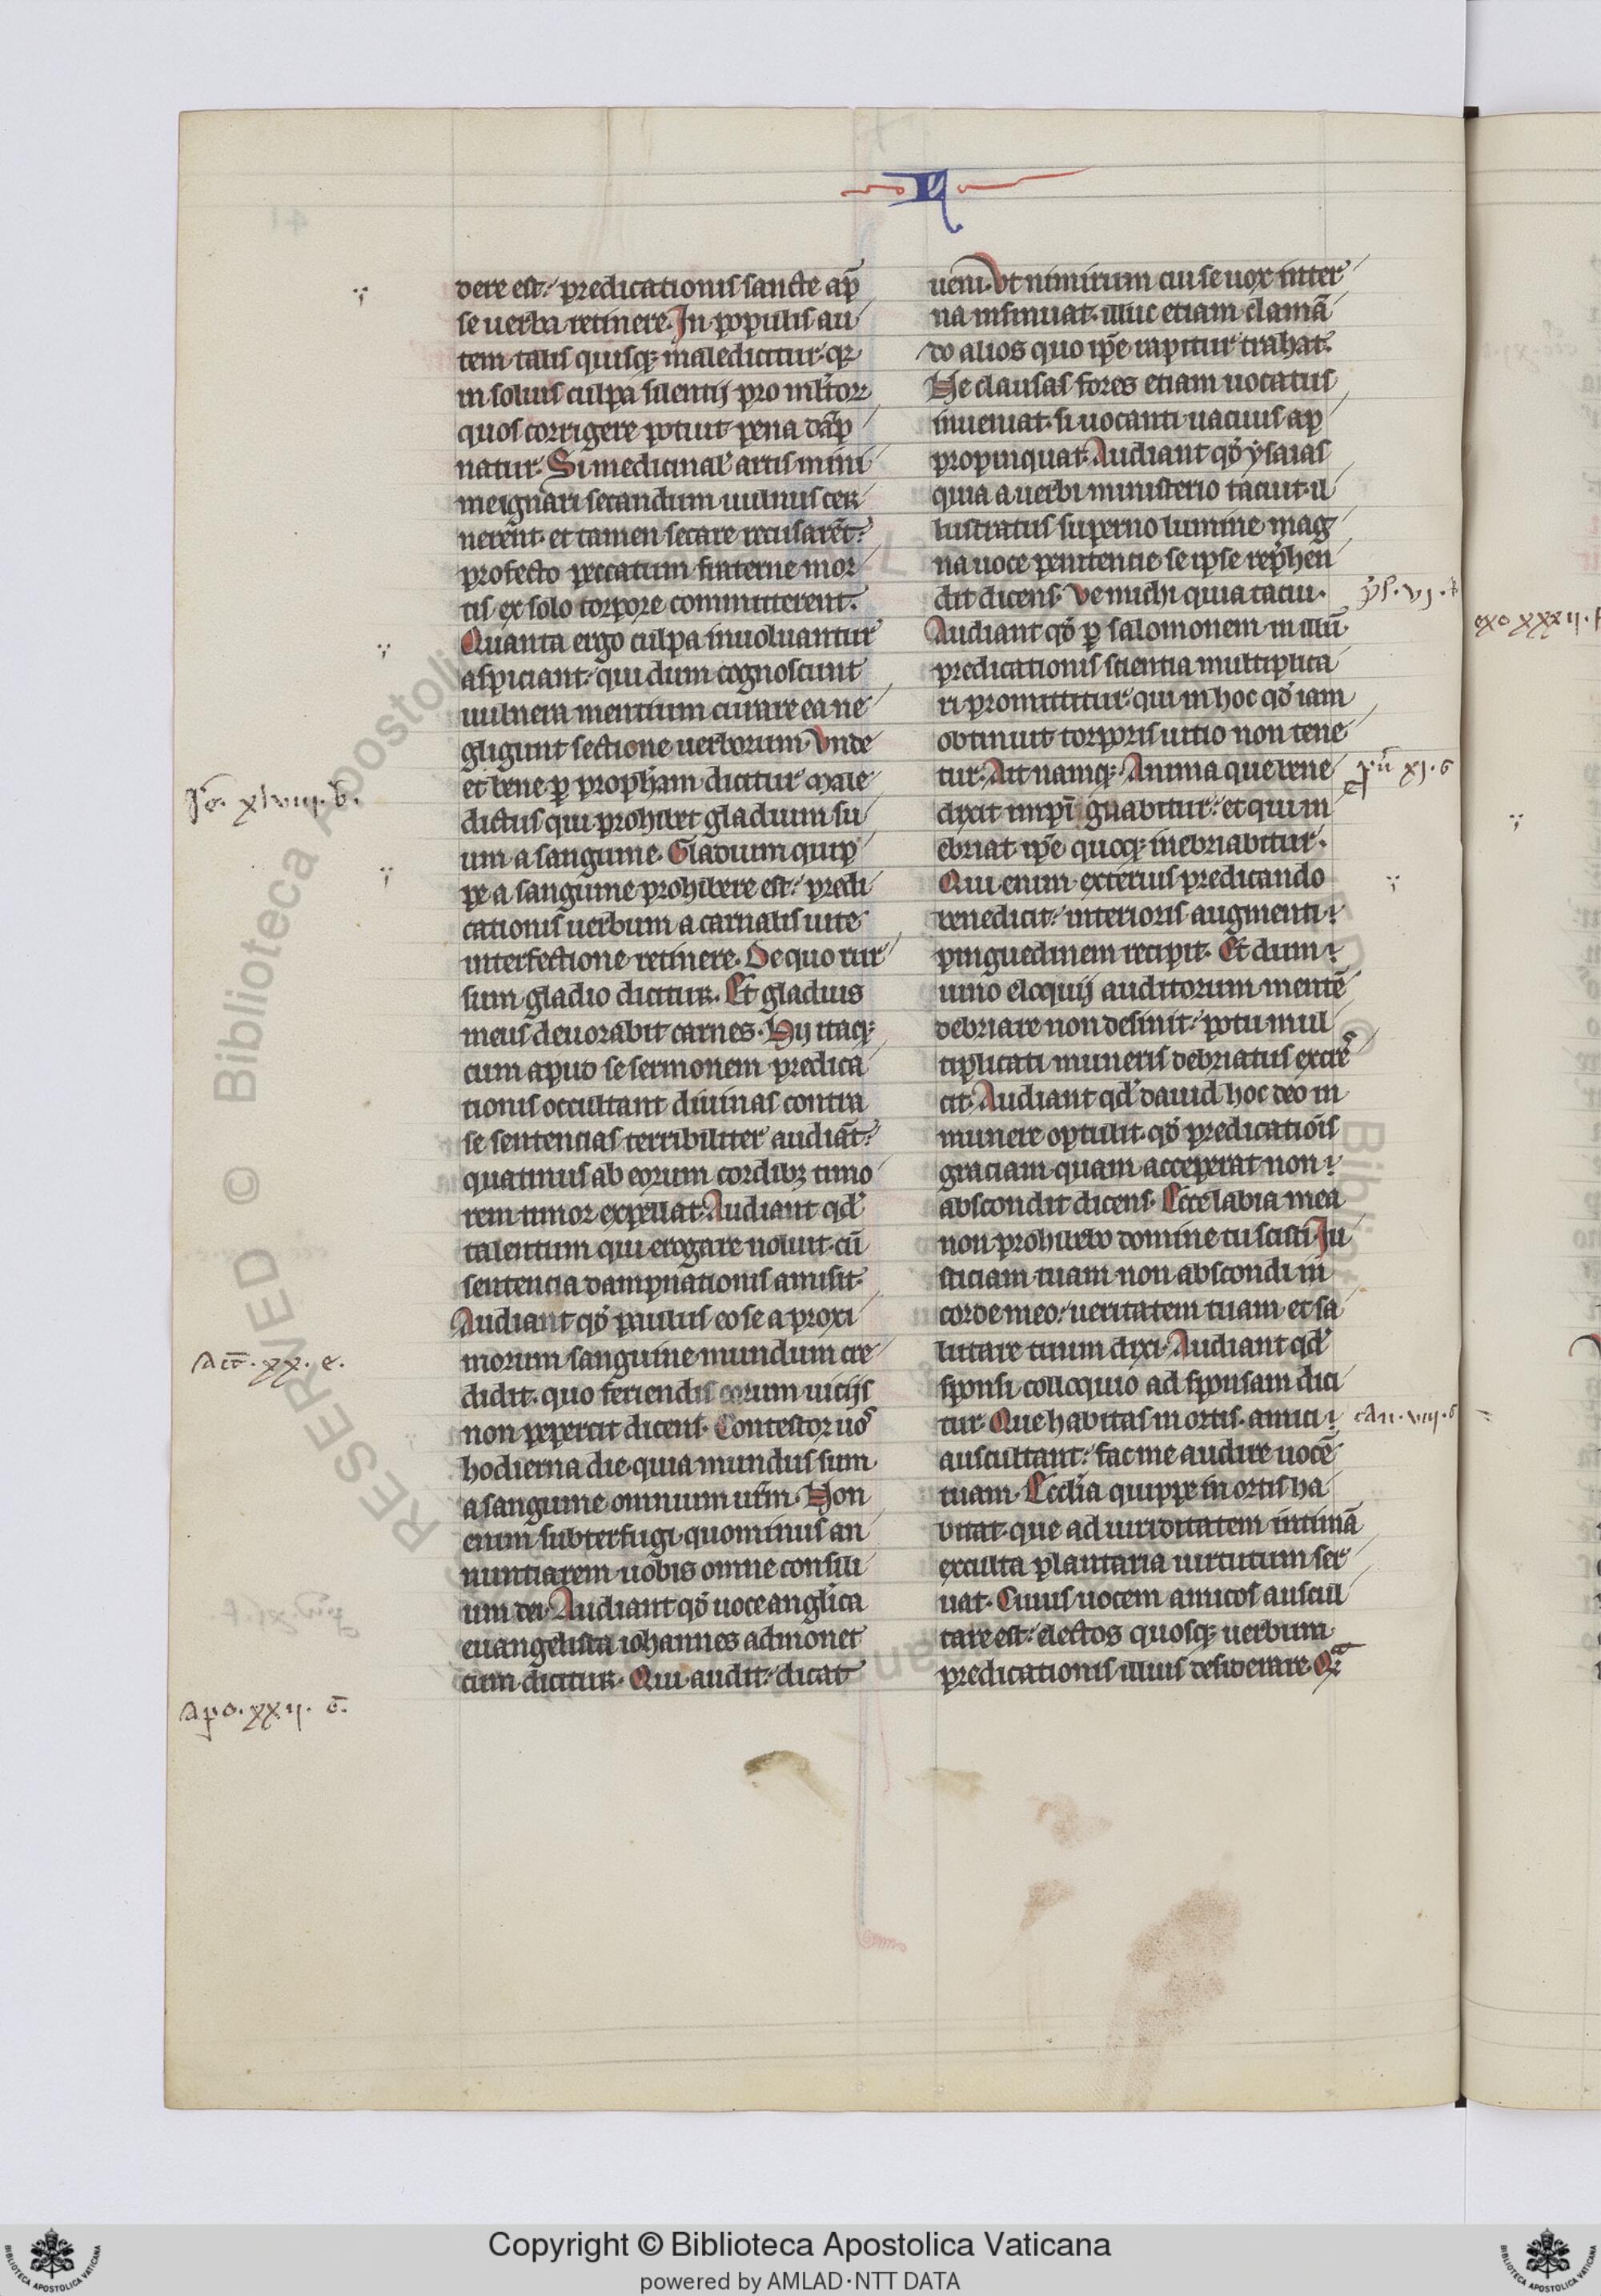 dere est. predicationis sancte ap̄
se uerba retinere. In populis au
tem talis quisq; maledicitur. qꝛ
in solius culpa silentij pro mltoꝝ
quos corrigere potuit pena dāp
natur. Si medicinal' artis mini
me ignari secandum uulnus cer
nerent. et tamen secare recusarēt.
profecto peccatum fraterne mor
tis ex solo torpore committerent.
Quanta ergo culpa inuoluantur
aspiciant. qui dum cognoscunt
uulnera mentium curare ea ne
gligunt sectione uerborum. Vnde
et bene ꝑ prophām dicitur male
dictus qui prohibet gladium su
um a sanguine. Gladium quip
pe a sanguine prohibere est. predi
cationis uerbum a carnalis uite
interfectione retinere. De quo rur
sum gladio dicitur. Et gladius
meus deuorabit carnes. Hij itaq;
cum apud se sermonem predica
tionis occultant diuinas contra
se sentencias terribiliter audiāt.
quatinus ab eorum cordibꝫ timo
rem timor expellat. Audiant qd'
talentum qui erogare noluit. cū
sentencia dampnationis amisit.
Audiant qd' paulus eo se a proxi
morum sanguine mundum cre
didit. quo feriendis eorum uicijs
non pepercit dicens. Contestor uos
hodierna die. quia mundus sum
a sanguine omnium urm̄. Non
enim subterfugi. quominus an
nuntiarem uobis omne consili
um dei. Audiant qd' uoce anglica
euangelista iohannes admonet
cum dicitur. Qui audit. dicat
ueni. Vt nimirum cui se uox inter
na insinuat. illuc etiam clamā
do alios quo ip̄e rapitur trahat.
Ne clausas fores etiam uocatus
inueniat. si uocanti uacuus ap
propinquat. Audiant qd' ysaias
quia a uerbi ministerio tacuit. il
lustratus superno lumine mag
na uoce penitentie se ipse rep̄hen
dit dicens. Ve michi quia tacui.
Audiant qd' ꝑ salomonem in illū
predicationis scientia multiplica
ri promittitur. qui in hoc qd' iam
obtinuit torporis uitio non tene
tur. Ait namq; Anima que bene
dixit impīguabitur. et qui in
ebriat. ip̄e quoq; inebriabitur.
Qui enim exterius predicando
benedicit. interioris augmenti
pinguedinem recipit. Et dum
uino eloquij auditorum mentē
debriare non desinit. potu mul
tiplicati muneris debriatus excre
cit. Audiant qd' dauid hoc deo in
munere optulit. qd' predicatiōis
graciam quam acceperat non
abscondit dicens. Ecce labia mea
non prohibebo domine tu scisti. Iu
sticiam tuam non abscondi in
corde meo. ueritatem tuam et sa
lutare tuum dixi. Audiant qd'
sponsi colloquio ad sponsam dici
tur. Que habitas in ortis. amici
auscultant. fac me audire uocē
tuam. Eccl'ia quippe in ortis ha
bitat. que ad uiriditatem intimā
exculta plantaria uirtutum ser
uat. Cuius uocem amicos auscul
tare est. electos quosq; uerbum
predicationis illius desiderare. Qᵃ
Je. xlviii. b.
Act̄. xx. e.
Apo. xxij. c̄.
ys. vj.
exo xxxij. f
p̄u xj. c
can. viij. c
RESERVED © Biblioteca Apostolica
Copyright © Biblioteca Apostolica Vaticana
powered by AMLAD·NTT DATA